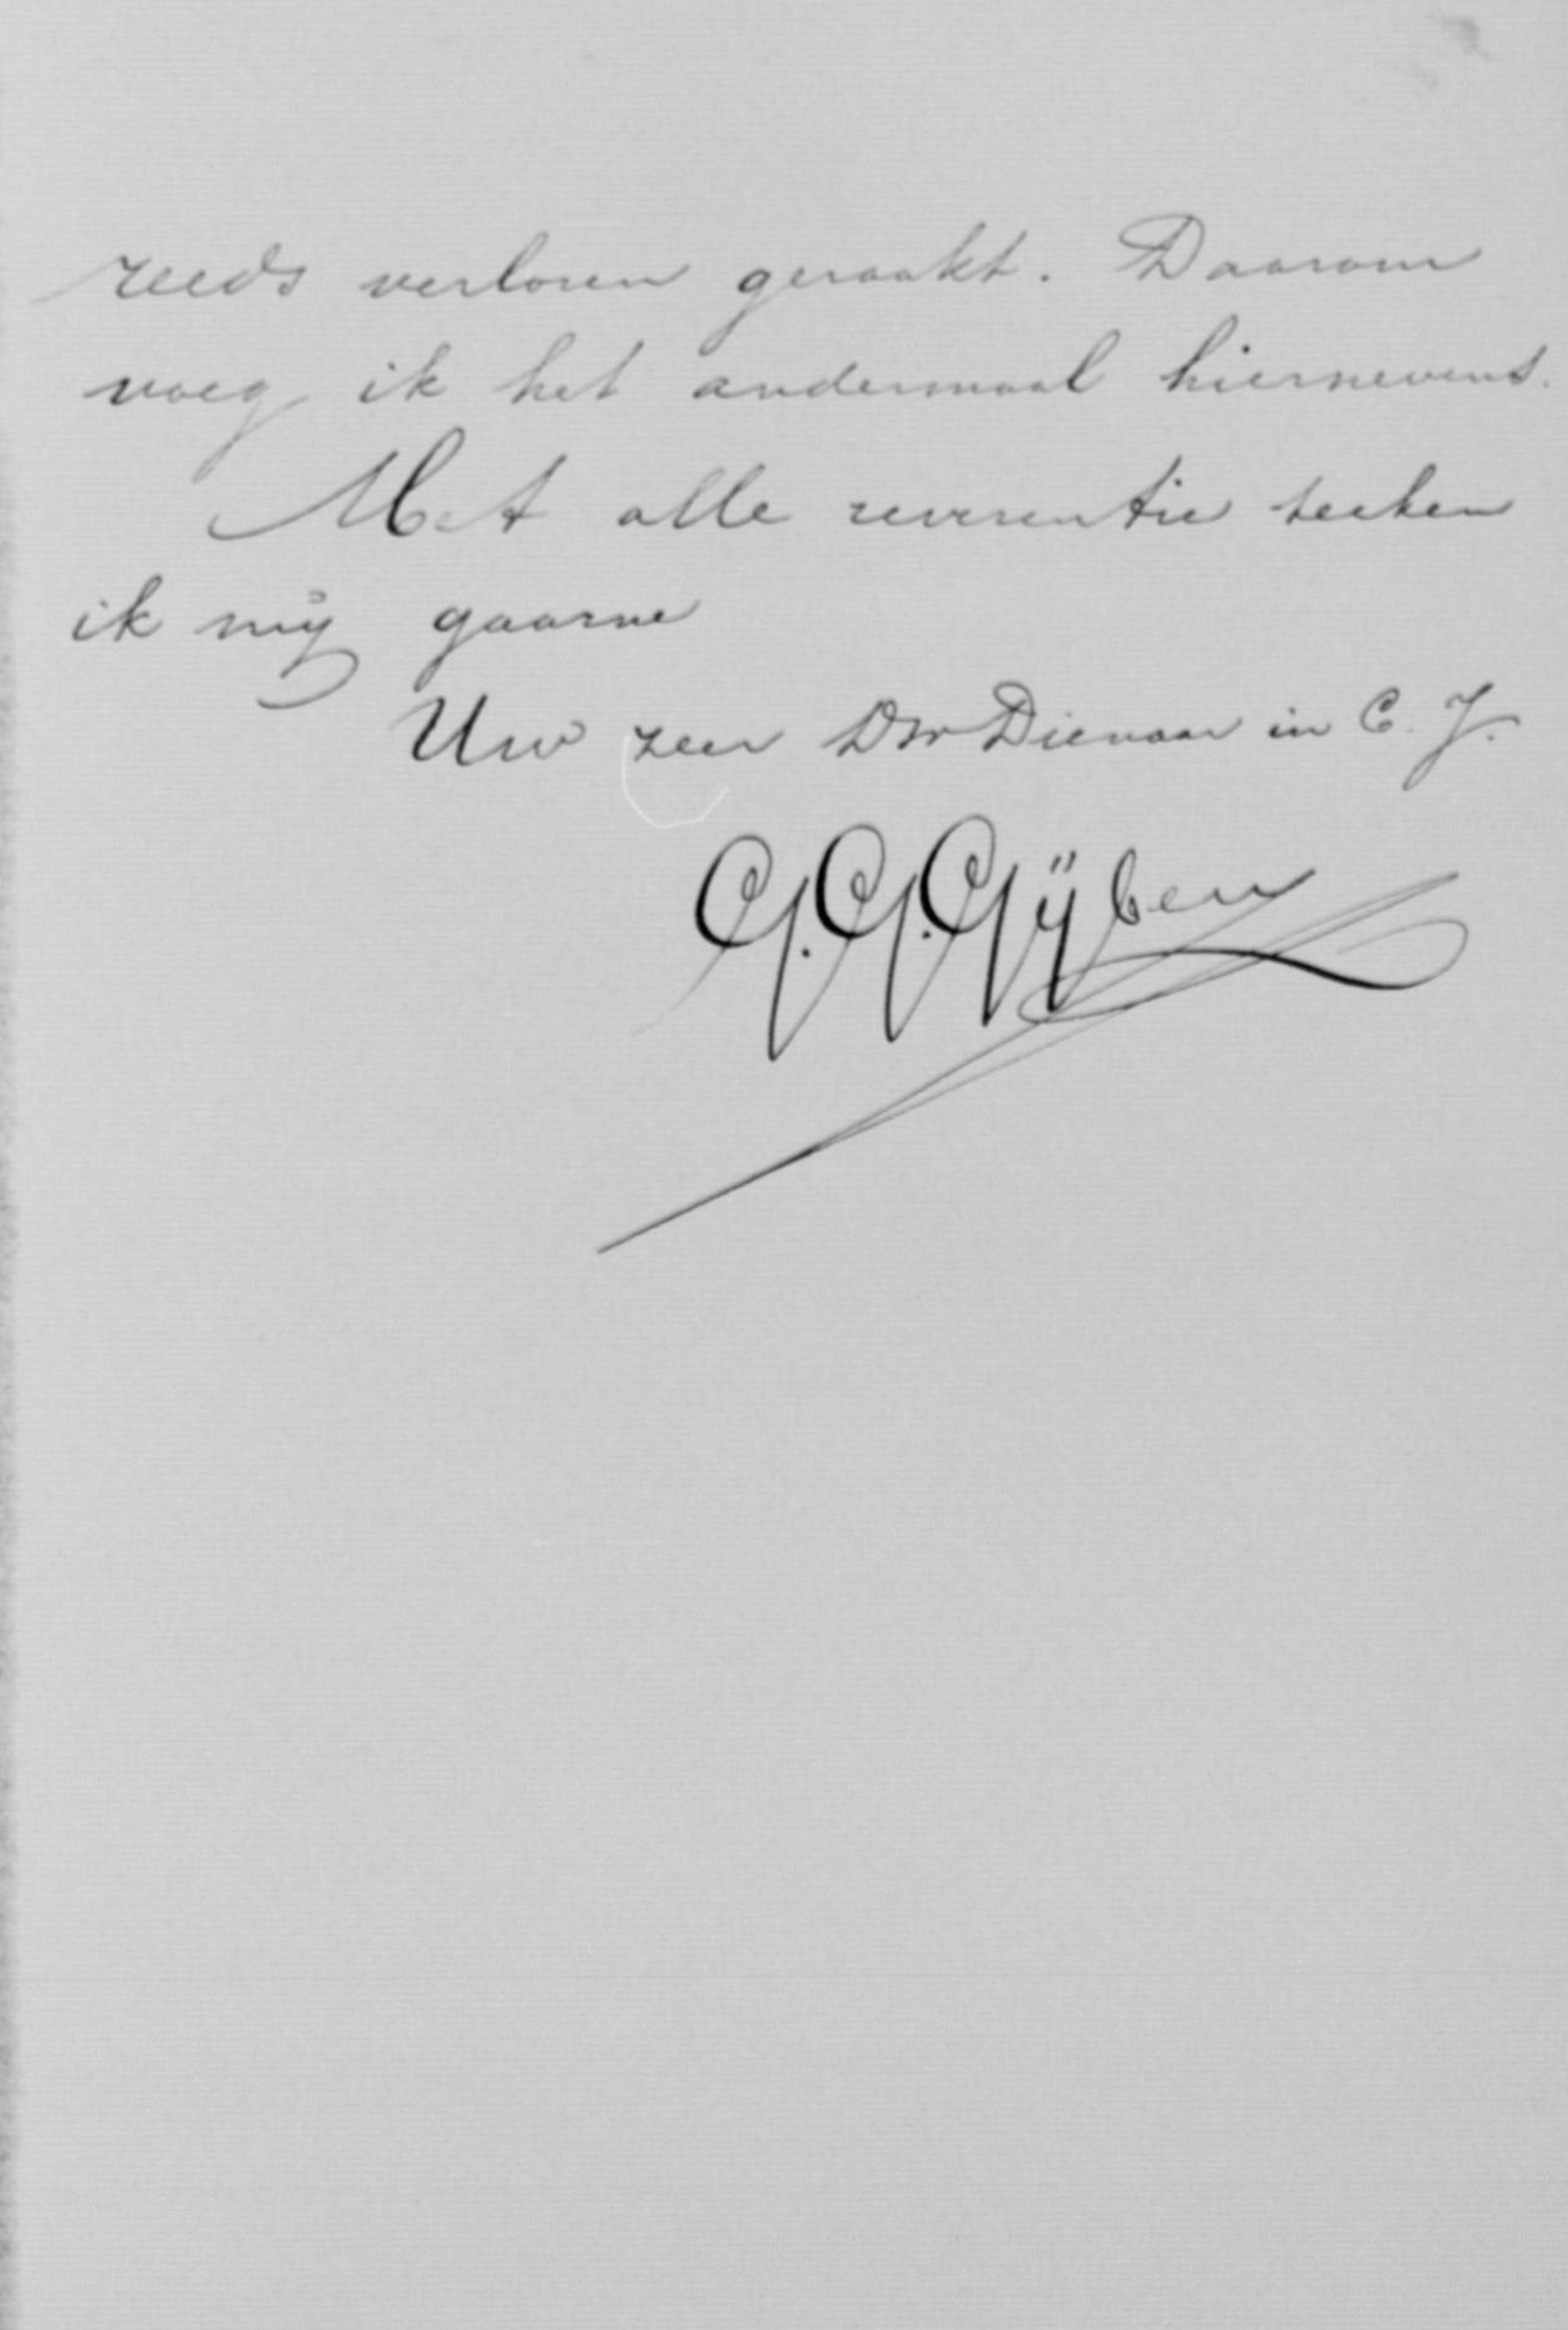 reeds verloren geraakt. Daarom
voeg ik het andermaal hiernevens.
Met alle reverentie teeken
ik mij gaarne
Uw zeer Dw Dienaar in C. J.
G. G. Gijben